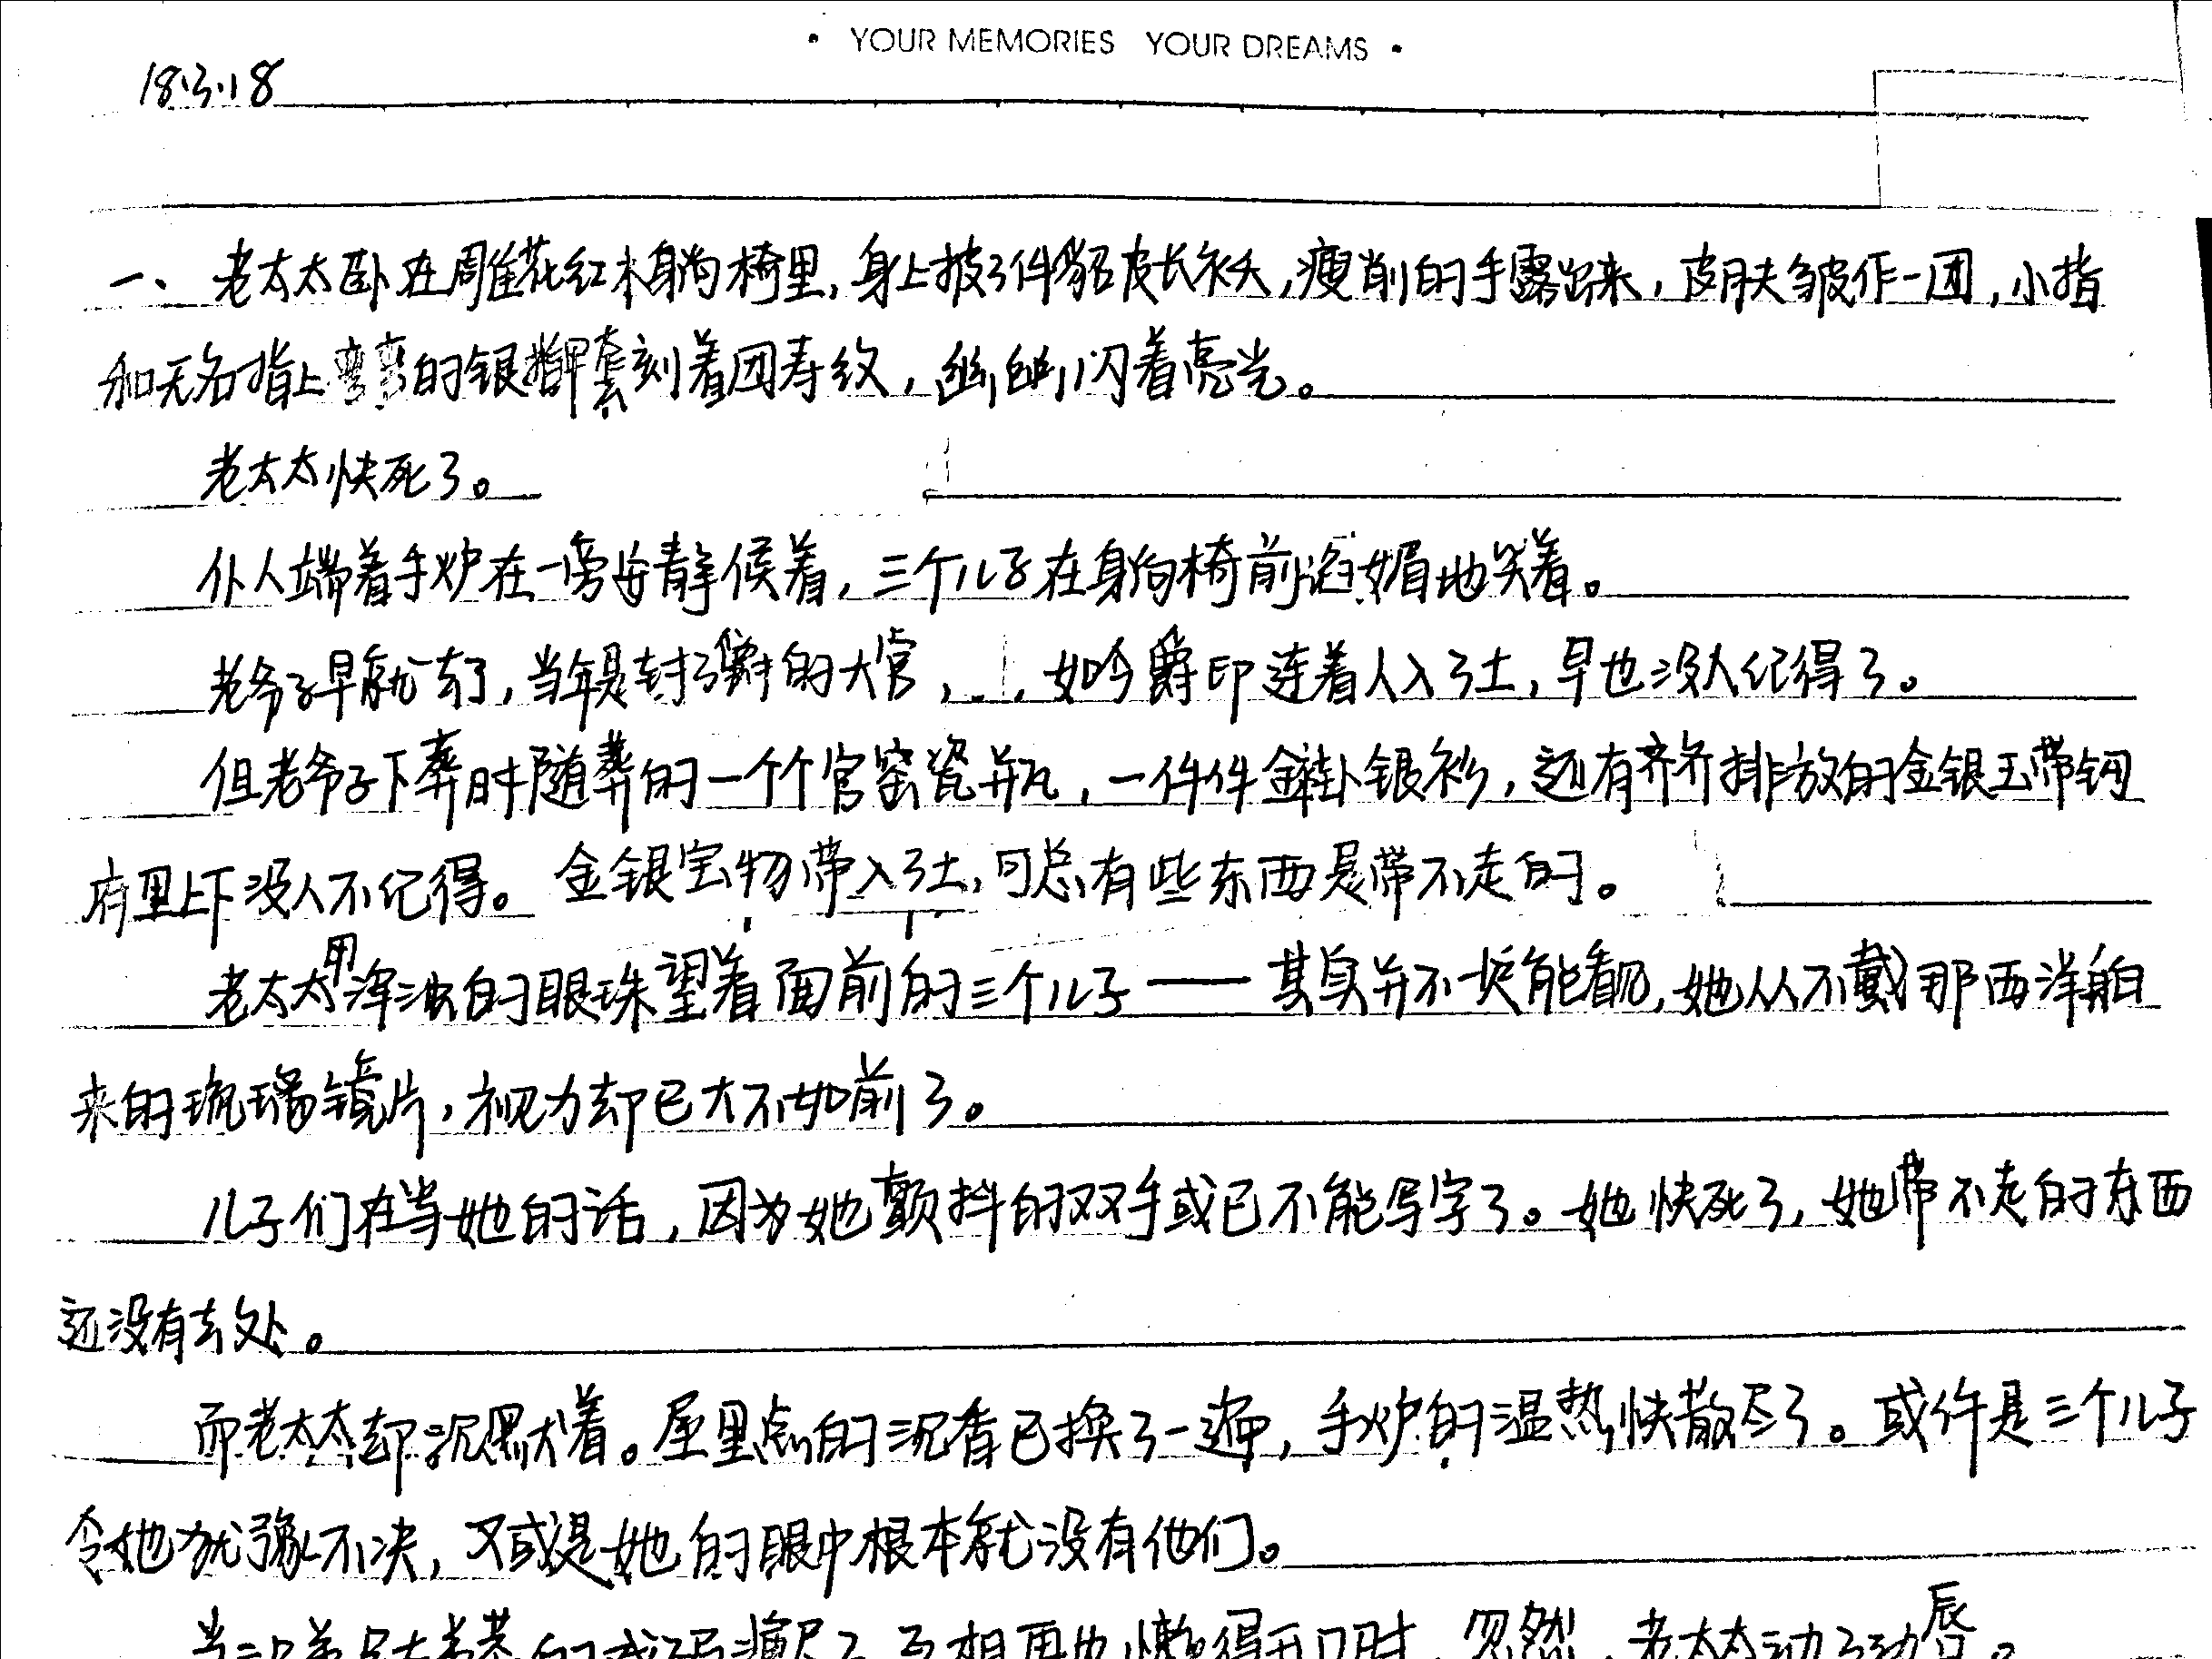 • YOUR MEMORIES YOUR DREAMS •
18.3.18
一、老太太卧在雕花红木躺椅里,身上披了件貂皮长袄,瘦削的手露出来,皮肤皱作一团,小指
和无名指上弯弯的银指甲套刻着团寿纹,幽幽闪着亮光。
老太太快死了。
仆人端着手炉在一旁安静候着,三个儿子在躺椅前谄媚地笑着。
老爷子早就去了,当年是封了爵的大官,如今爵印连着人入了土,早也没人记得了。
但老爷子下葬时随葬的一个个官窑瓷瓶,一件件金褂银衫,还有齐齐排放的金银玉带钩
府里上下没人不记得。金银宝物带入了土,可总有些东西是带不走的。
老太太用浑浊的眼珠望着面前的三个儿子——其实并不一定能看见,她从不戴那西洋舶
来的琉璃镜片,视力却已大不如前了。
儿子们在等她的话,因为她颤抖的双手或已不能写字了。她快死了,她带不走的东西
还没有去处。
而老太太却沉默着。屋里点的沉香已换了一遍,手炉的温热快散尽了。或许是三个儿子
令她犹豫不决,又或是她的眼中根本就没有他们。
忽然,老太太动了动唇。